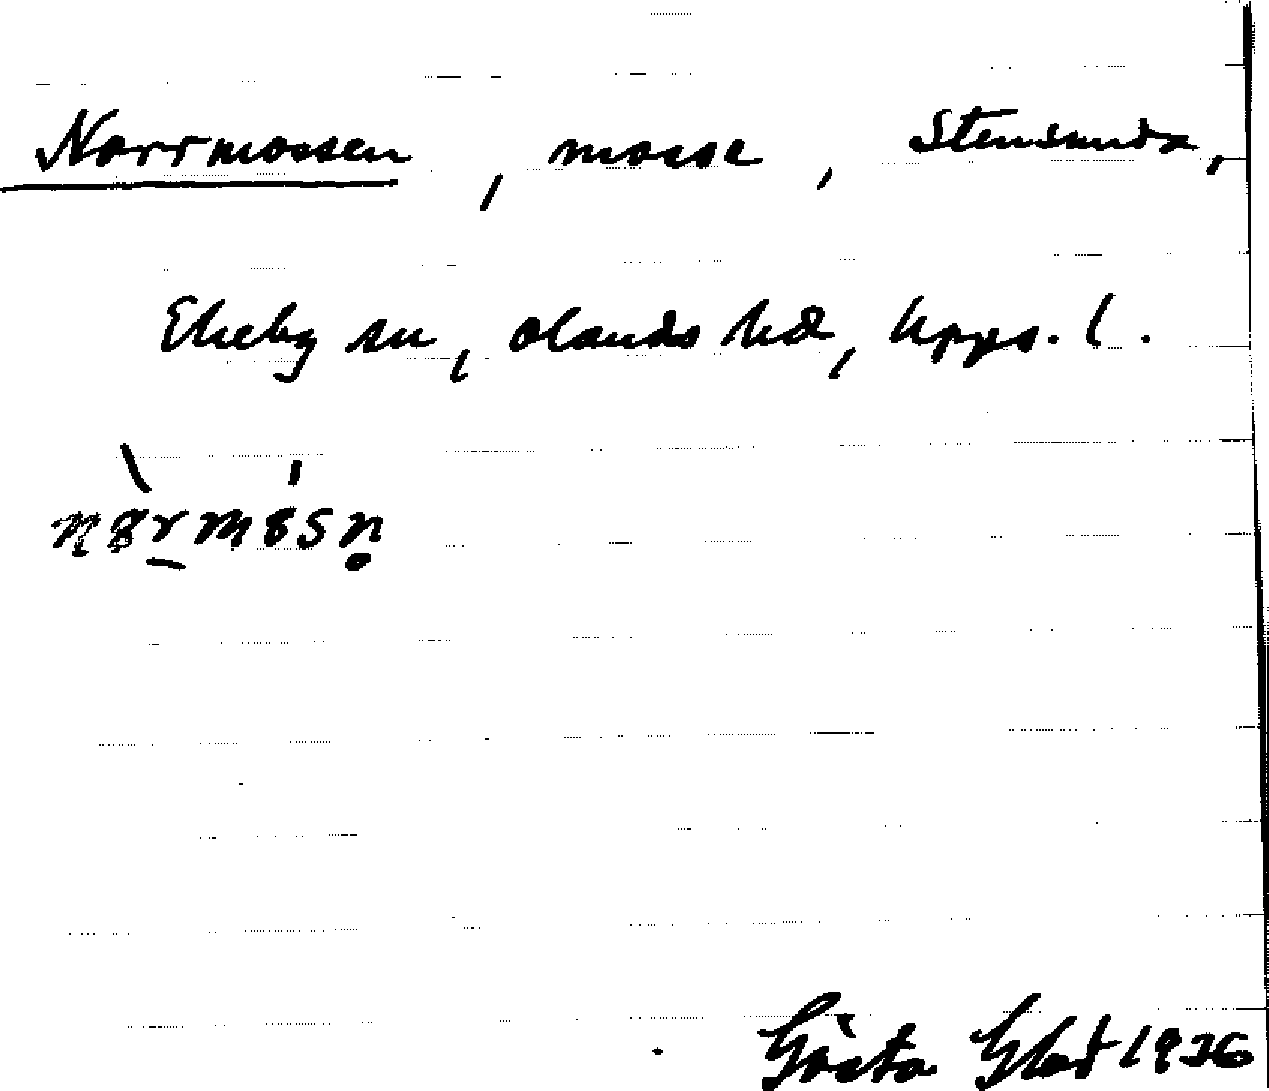 Norrmossen, mosse, Stensunda,
Ekeby sn, Olands hd, Upps. l.
Gösta Glad 1936